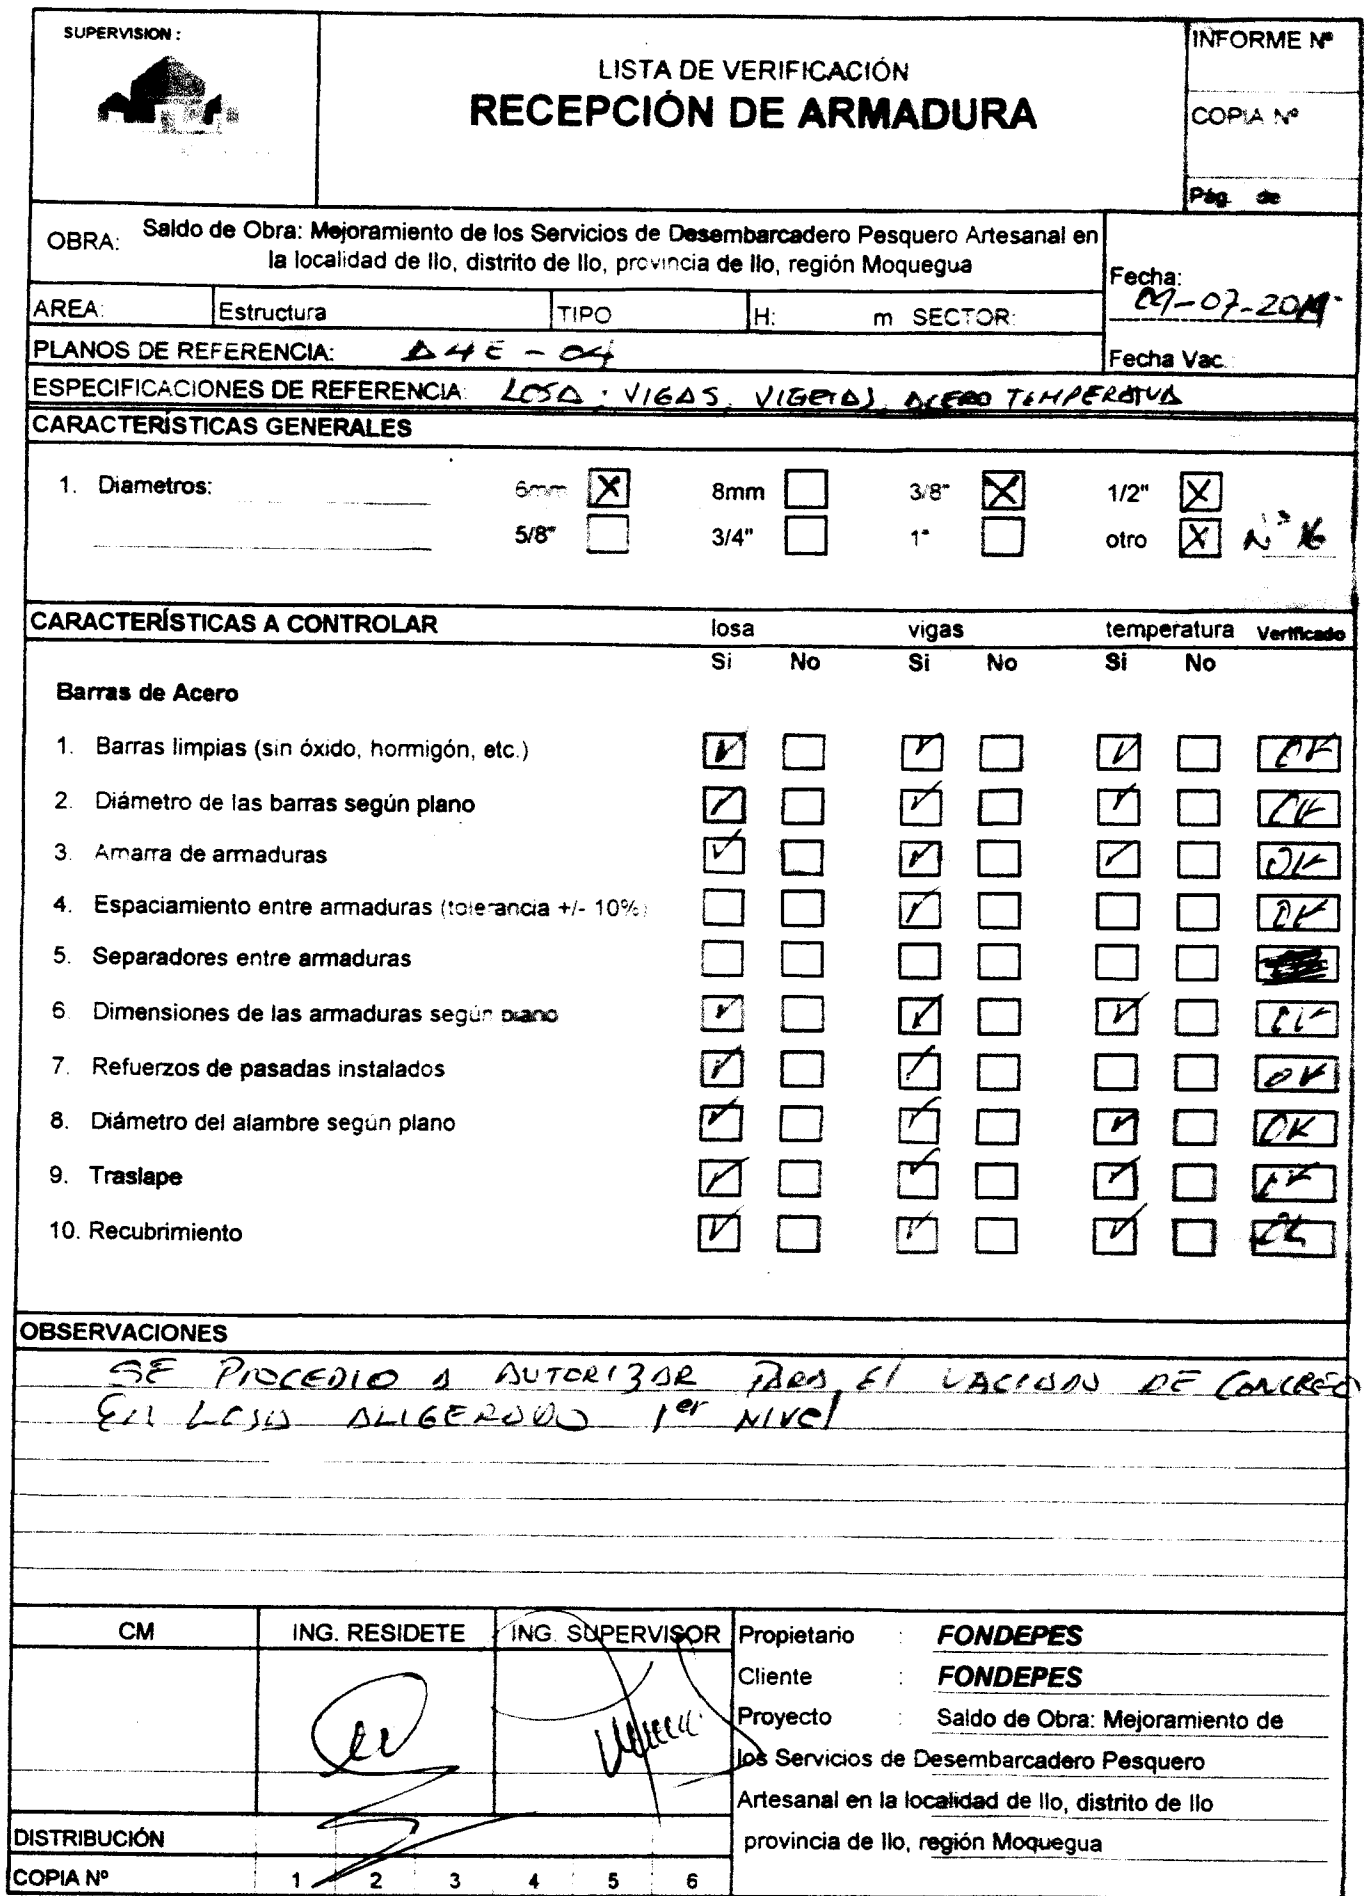 SUPERVISION :
LISTA DE VERIFICACIÓN
RECEPCIÓN DE ARMADURA
INFORME Nº
COPIA Nº
Pág. de
OBRA: Saldo de Obra: Mejoramiento de los Servicios de Desembarcadero Pesquero Artesanal en
la localidad de Ilo, distrito de Ilo, provincia de Ilo, región Moquegua
Fecha:
-07-
AREA: Estructura TIPO H: m SECTOR:
PLANOS DE REFERENCIA: A4E - 04
Fecha Vac.:
ESPECIFICACIONES DE REFERENCIA: LOSA: VIGAS, VIGETAS, ACERO TEMPERATUA
CARACTERÍSTICAS GENERALES
1. Diametros: 6mm X 8mm 3/8" X 1/2" X
5/8" 3/4" 1" otro X Nº
CARACTERÍSTICAS A CONTROLAR losa vigas temperatura Verificado
Si No Si No Si No
Barras de Acero
1. Barras limpias (sin óxido, hormigón, etc.) ✓ ✓ ✓ OK
2. Diámetro de las barras según plano ✓ ✓ ✓ OK
3. Amarra de armaduras ✓ ✓ ✓ OK
4. Espaciamiento entre armaduras (tolerancia +/- 10%) ✓ OK
5. Separadores entre armaduras
6. Dimensiones de las armaduras según plano ✓ ✓ ✓ OK
7. Refuerzos de pasadas instalados ✓ ✓ OK
8. Diámetro del alambre según plano ✓ ✓ ✓ OK
9. Traslape ✓ ✓ ✓ OK
10. Recubrimiento ✓ ✓ ✓ OK
OBSERVACIONES
SE PROCEDIO A AUTORIZAR PARA El VACIADO DE CONCRETO
EN LOSA ALIGERADO 1er NIVEl
CM ING. RESIDETE ING. SUPERVISOR
Propietario : FONDEPES
Cliente : FONDEPES
Proyecto : Saldo de Obra: Mejoramiento de
los Servicios de Desembarcadero Pesquero
Artesanal en la localidad de Ilo, distrito de Ilo
provincia de Ilo, región Moquegua
DISTRIBUCIÓN
COPIA Nº 1 2 3 4 5 6